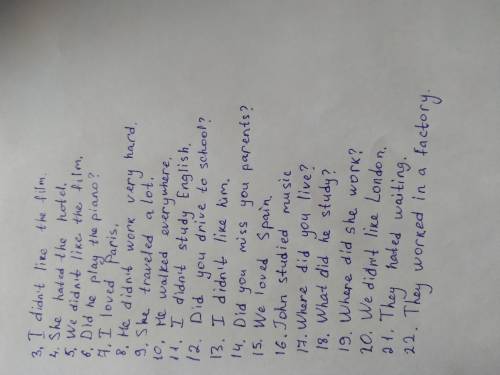 3, I didn't like the film.
4. She hated the hotel.
5, We didn't like the film.
6, Did he play the piano?
7, I loved Paris.
8. He didn't work very hard.
9. She traveled a lot.
10, He walked everywhere.
11. I didn't study English.
12. Did you drive to school?
13. I didn't like him.
14. Did you miss you parents?
15. We loved Spain
16. John studied music
17. Where did you live?
18. What did he study?
19. Where did she work?
20. We didn't like London.
21. They hated waiting.
22. They worked in a factory.